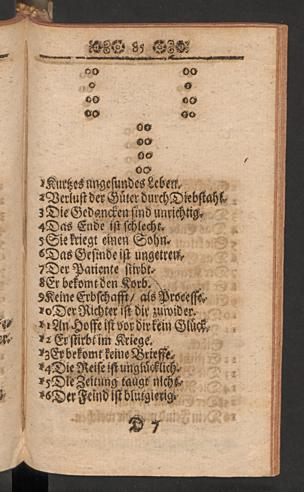 85
1 Kurtzes ungesundes Leben.
2 Verlust der Güter durch Diebstahl.
3 Die Gedancken sind unrichtig.
4 Das Ende ist schlecht.
5 Sie kriegt einen Sohn.
6 Das Gesinde ist ungetreu.
7 Der Patiente stirbt.
8 Er bekomt den Korb.
9 Keine Erbschafft / als Processe.
10 Der Richter ist dir zuwider.
11 An Hoffe ist vor dir kein Glück.
12 Er stirbt im Kriege.
13 Er bekomt keine Brieffe.
14 Die Reise ist unglücklich.
15 Die Zeitung taugt nicht.
16 Der Feind ist blutgierig.
D 7